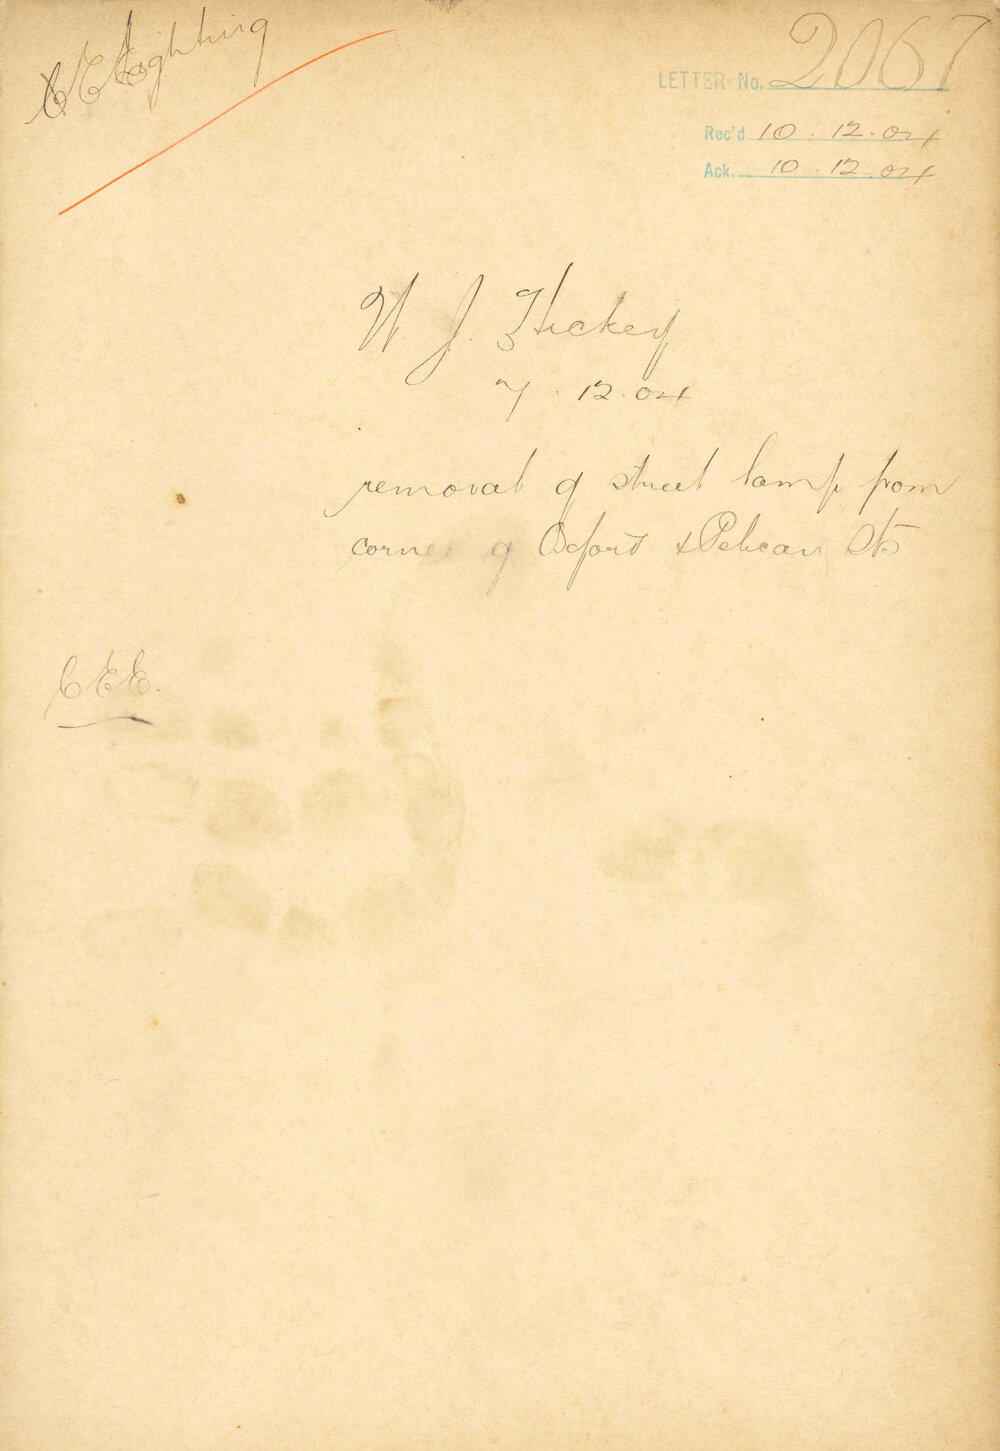 CEE Lighting
LETTER No. 2067
Rec'd 10.12.04
Ack. 10.12.04
W. J. Hickey
7.12.04
removal of street lamp from
corner of Oxford & Pelican Sts
CEE.